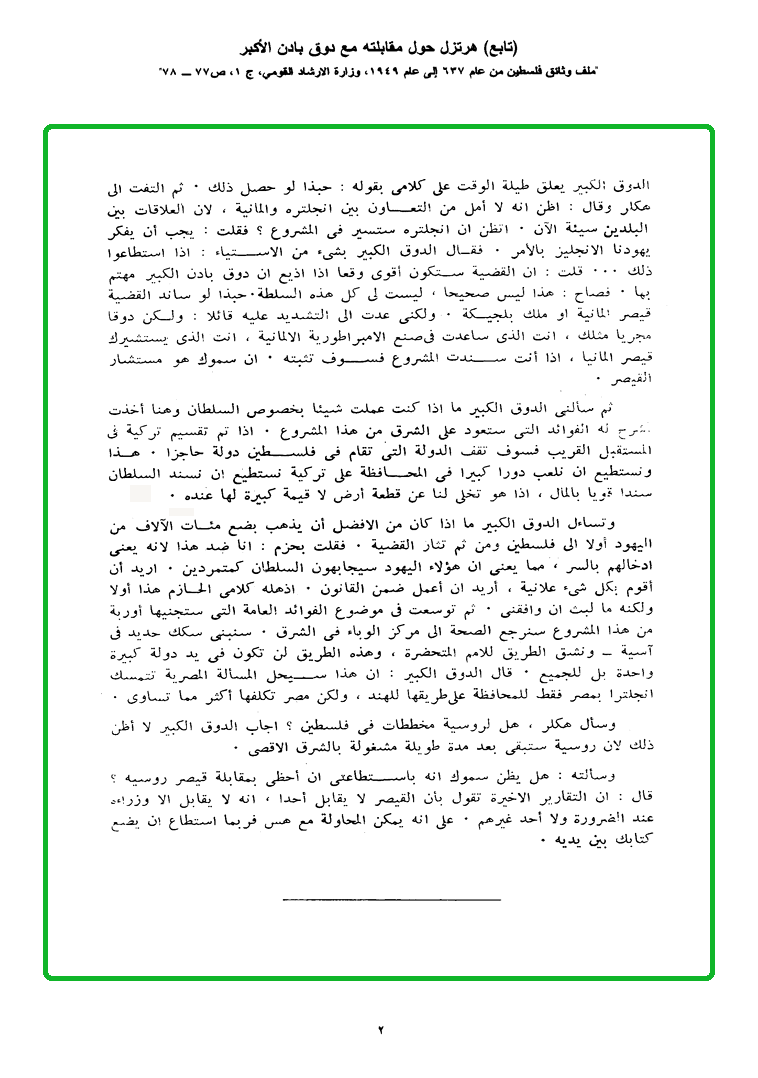 (تابع) هرتزل حول مقابلته مع دوق بادن الأكبر
"ملف وثائق فلسطين من عام ٦٣٧ إلى عام ١٩٤٩، وزارة الارشاد القومي، ج ١، ص ٧٧ ــ ٧٨"
الدوق الكبير يعلق طيلة الوقت على كلامى بقوله : حبذا لو حصل ذلك ٠ ثم التفت الى
هكلر وقال : اظن انه لا أمل من التعــاون بين انجلتره والمانية ، لان العلاقات بين
البلدين سيئة الآن ٠ اتظن ان انجلتره ستسير فى المشروع ؟ فقلت : يجب أن يفكر
يهودنا الانجليز بالأمر ٠ فقــال الدوق الكبير بشىء من الاســتياء : اذا استطاعوا
ذلك ٠٠٠ قلت : ان القضية ســتكون أقوى وقعا اذا اذيع ان دوق بادن الكبير مهتم
بها ٠ فصاح : هذا ليس صحيحا ، ليست لى كل هذه السلطة٠حبذا لو ساند القضية
قيصر المانية او ملك بلجيــكة ٠ ولكنى عدت الى التشديد عليه قائلا : ولــكن دوقا
مجريا مثلك ، انت الذى ساعدت فى صنع الامبراطورية الالمانية ، انت الذى يستشيرك
قيصر المانيا ، اذا أنت ســندت المشروع فســوف تثبته ٠ ان سموك هو مستشار
القيصر ٠
ثم سألنى الدوق الكبير ما اذا كنت عملت شيئا بخصوص السلطان وهنا أخذت
اشرح له الفوائد التى ستعود على الشرق من هذا المشروع ٠ اذا تم تقسيم تركية فى
المستقبل القريب فسوف تقف الدولة التى تقام فى فلســطين دولة حاجزا ٠ هــذا
ونستطيع ان نلعب دورا كبيرا فى المحــافظة على تركية نستطيع ان نسند السلطان
سندا قويا بالمال ، اذا هو تخلى لنا عن قطعة أرض لا قيمة كبيرة لها عنده ٠
وتساءل الدوق الكبير ما اذا كان من الافضل أن يذهب بضع مئــات الآلاف من
اليهود أولا الى فلسطين ومن ثم تثار القضية ٠ فقلت بحزم : انا ضد هذا لانه يعنى
ادخالهم بالسر ، مما يعنى ان هؤلاء اليهود سيجابهون السلطان كمتمردين ٠ اريد أن
أقوم بكل شىء علانية ، أريد ان أعمل ضمن القانون ٠ اذهله كلامى الحــازم هذا أولا
ولكنه ما لبث ان وافقنى ٠ ثم توسعت فى موضوع الفوائد العامة التى ستجنيها أوربة
من هذا المشروع سنرجع الصحة الى مركز الوباء فى الشرق ٠ سنبنى سكك حديد فى
آسية ــ ونشق الطريق للامم المتحضرة ، وهذه الطريق لن تكون فى يد دولة كبيرة
واحدة بل للجميع ٠ قال الدوق الكبير : ان هذا ســيحل المسألة المصرية تتمسك
انجلترا بمصر فقط للمحافظة على طريقها للهند ، ولكن مصر تكلفها أكثر مما تســاوى ٠
وسأل هكلر ، هل لروسية مخططات فى فلسطين ؟ اجاب الدوق الكبير لا أظن
ذلك لان روسية ستبقى بعد مدة طويلة مشغولة بالشرق الاقصى ٠
وسألته : هل يظن سموك انه باســتطاعتى ان أحظى بمقابلة قيصر روسيه ؟
قال : ان التقارير الاخيرة تقول بأن القيصر لا يقابل أحدا ، انه لا يقابل الا وزراءه
عند الضرورة ولا أحد غيرهم ٠ على انه يمكن المحاولة مع هس فربما استطاع ان يضع
كتابك بين يديه ٠
٢